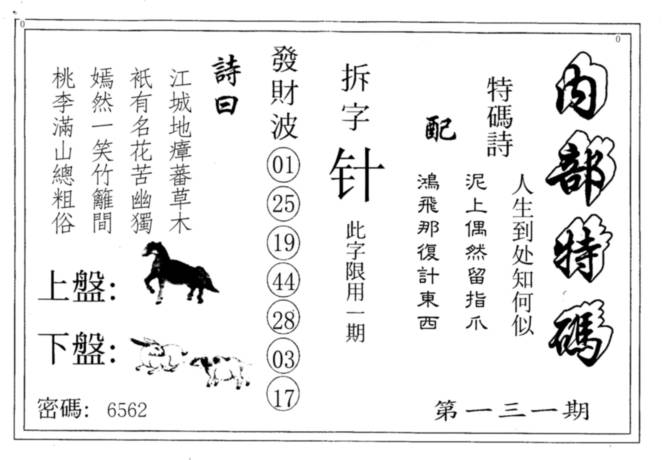 內部特碼
特碼詩
人生到处知何似
泥上偶然留指爪
配
鴻飛那復計東西
拆字
针
此字限用一期
發財波
01
25
19
44
28
03
17
詩曰
江城地瘴蕃草木
衹有名花苦幽獨
嫣然一笑竹籬間
桃李滿山總粗俗
上盤:
下盤:
密碼: 6562
第一三一期